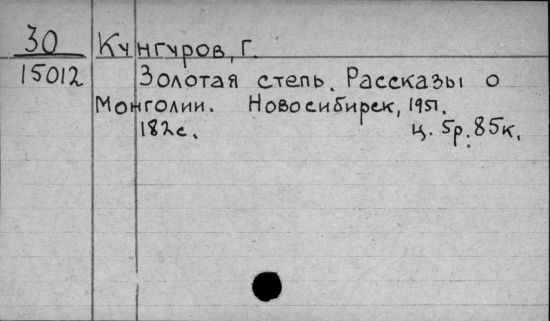 30
15012
Кунгуров, Г.
Золотая степь. Рассказы о
Монголии. Новосибирск, 1951.
182с. ц. 5р. 85к.